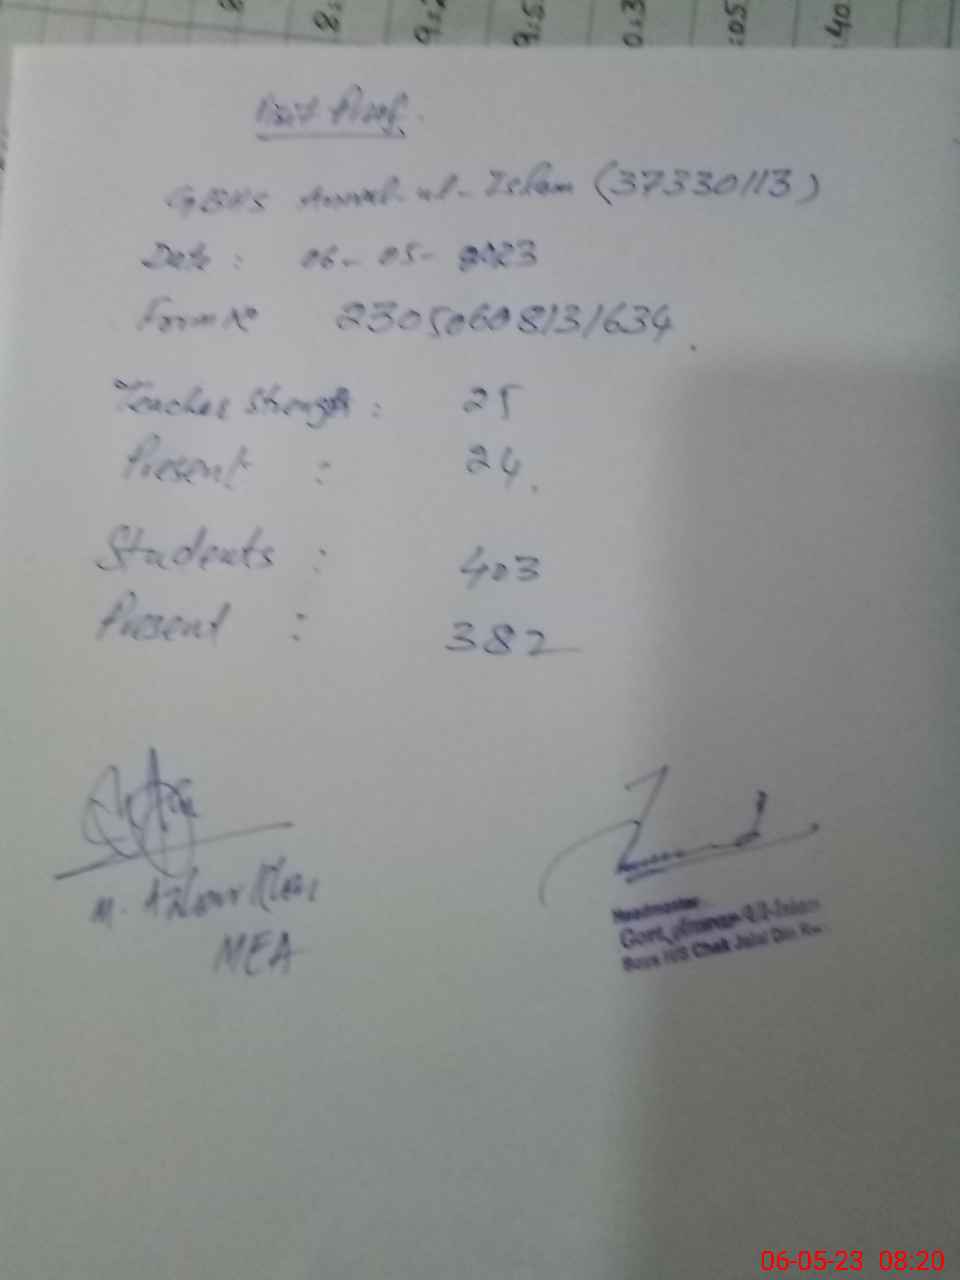 8:
9:2
9:5
0:3
:05
:40
Visit Proof.
GBHS Anwal-ul-Islam (37330113)
Date : 06-05-2023
Form No 23050608131634.
Teacher Strength : 25
Present : 24.
Students : 403
Present : 382
M. Azhar
MEA
Headmaster
Govt. Ul-Islam
Boys H/S Chak Jalal Din
06-05-23 08:20